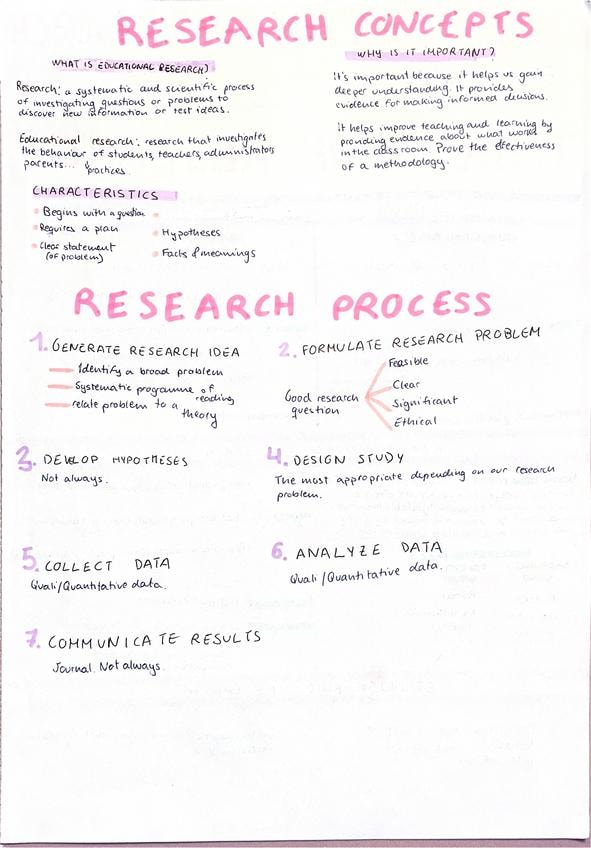 RESEARCH CONCEPTS
WHAT IS EDUCATIONAL RESEARCH?
Research: a systematic and scientific process
of investigating questions or problems to
discover new information or test ideas.
Educational research: research that investigates
the behaviour of students, teachers, administrators
parents... & practices.
WHY IS IT IMPORTANT?
It's important because it helps us gain
deeper understanding. It provides
evidence for making informed decisions.
It helps improve teaching and learning by
providing evidence about what works
in the classroom. Prove the effectiveness
of a methodology.
CHARACTERISTICS
Begins with a question
Requires a plan
Clear statement
(of problem)
Hypotheses
Facts & meanings
RESEARCH PROCESS
1. GENERATE RESEARCH IDEA
Identify a broad problem
Systematic programme of
reading
relate problem to a
theory
2. FORMULATE RESEARCH PROBLEM
Good research
question
Feasible
Clear
Significant
Ethical
3. DEVELOP HYPOTHESES
Not always.
4. DESIGN STUDY
The most appropriate depending on our research
problem.
5. COLLECT DATA
Quali/Quantitative data.
6. ANALYZE DATA
Quali/Quantitative data.
7. COMMUNICATE RESULTS
Journal. Not always.